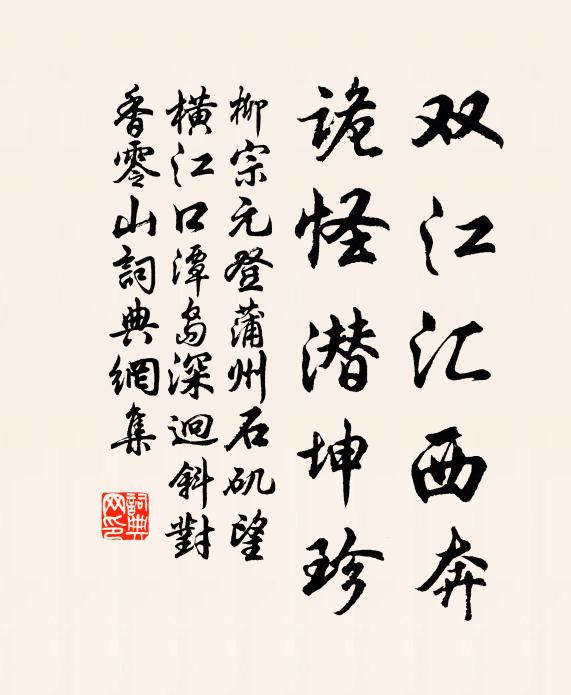 双江汇西奔
诡怪潜坤珍
柳宗元登蒲州石矶望
横江口潭岛深迥斜對
香零山詞典網集
詞典网印